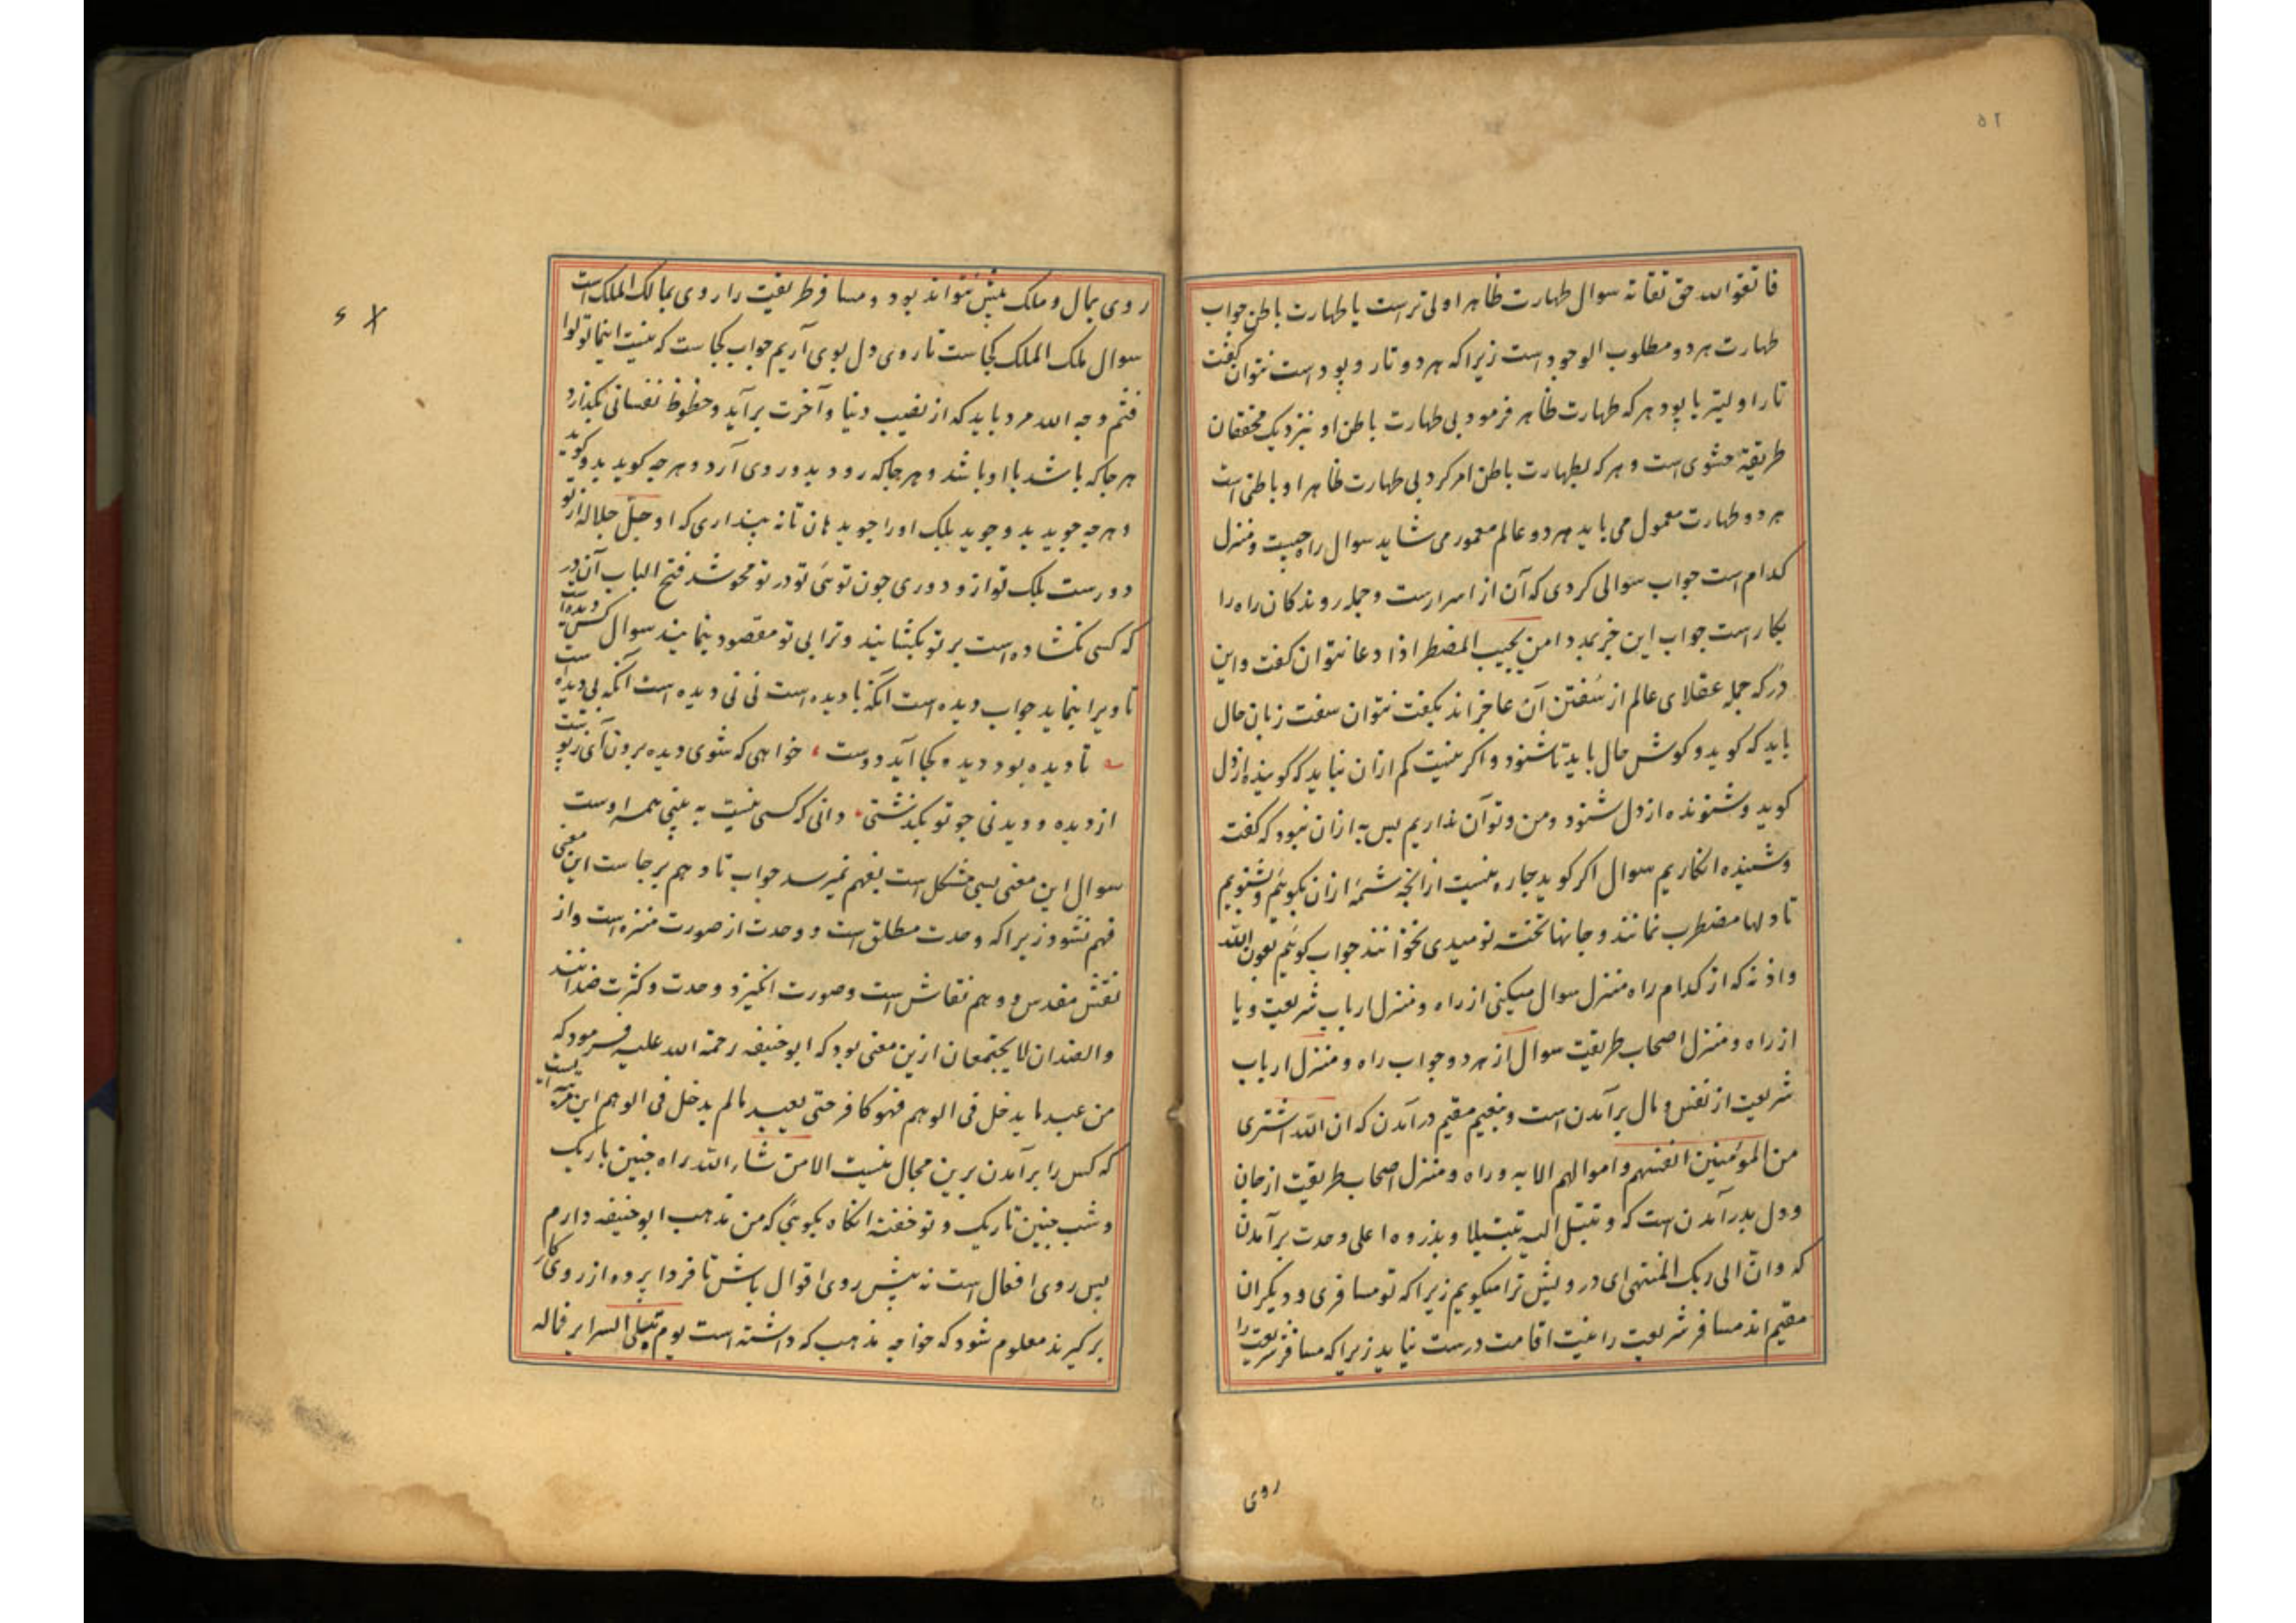 ۵۲
فاتقوا الله حق تقاته سوال طهارت ظاهر اولی ترست یا طهارت باطن جواب
طهارت هر دو مطلوب الوجود است زیرا که هر دو تار و پود است نتوان گفت
تار اولیتر یا پود هر که طهارت ظاهر فرمود بی طهارت باطن او بنزدیک محققان
طریقة حشوی است و هر که بطهارت باطن امر کرد بی طهارت ظاهر او باطنی است
هر دو طهارت معمول می باید هر دو عالم معمور می شاید سوال راه چیست و منزل
کدام است جواب سوالی کردی که آن از اسرارست و جمله روندکان راه را
بکار است جواب این جز بمدد امن یجیب المضطر اذا دعا نتوان کفت و این
در که جمله عقلای عالم از سفتن آن عاجز اند بکفت نتوان سفت زبان حال
باید که کوید و کوش حال باید تا شنود و اکر نیست کم ازان نباید که کوینده از دل
کوید و شنونده از دل شنود و من و تو آن نداریم بس به ازان نبود که کفت
و شنیده انکاریم سوال اکر کوید چاره نیست از انچه شمهٔ ازان بکوییم و بشنویم
تا دلها مضطرب نمانند و جانها تخته نومیدی نخوانند جواب کوییم بعون الله
و اذنه که از کدام راه منزل سوال میکنی از راه و منزل ارباب شریعت و یا
از راه و منزل اصحاب طریقت سوال از هر دو جواب راه و منزل ارباب
شریعت از نفس و مال برآمدن است و بنعیم مقیم درآمدن که ان الله اشتری
من المؤمنین انفسهم و اموالهم الایه و راه و منزل اصحاب طریقت از جان
و دل بدر آمدن است که و تبتل الیه تبتیلا و بذروه اعلی وحدت برآمدن
که وان الی ربک المنتهی ای درویش ترا میکویم زیرا که تو مسافری و دیکران
مقیم اند مسافر شریعت را نیت اقامت درست نیاید زیرا که مسافر شریعت را
روی
روی بمال و ملک بیش نتواند بود و مسافر طریقت را روی بمالک الملک است
سوال ملک الملک کجاست تا روی دل بوی آریم جواب کجاست که نیست اینما تولوا
فثم وجه الله مرد باید که از نصیب دنیا و آخرت برآید و حظوظ نفسانی بگذارد
هر جا که باشد با او باشد و هر جا که رود بدو روی آرد و هر چه کوید بدو کوید
و هر چه جوید بدو جوید بلک اورا جوید هان تا نه پنداری که او جل جلاله از تو
دورست بلک تو ازو دوری چون توئی تو در تو محو شد فتح الباب آن در
که کسی نکشاده است بر تو بکشایند و ترا بی تو مقصود بنمایند سوال کس دیده است
تا ویرا بنماید جواب دیده است آنکه نادیده است نی نی دیده است آنکه بی دیده است
بیت تا دیده بود دیده کجا آید دوست خواهی که شوی دیده برون آی ز پوست
از دیده و دیدنی چو تو بگذشتی دانی که کسی نیست به بینی همه اوست
سوال این معنی بسی مشکل است بفهم نمیرسد جواب تا وهم برجاست این معنی
فهم نشود زیرا که وحدت مطلق است و وحدت از صورت منزه است و از
نقش مقدس و وهم نقاش است و صورت انکیزد وحدت و کثرت ضدانند
و الضدان لا یجتمعان ازین معنی بود که ابوحنیفه رحمة الله علیه فرمود که
من عبد ما یدخل فی الوهم فهو کافر حتی یعبد ما لم یدخل فی الوهم این
که کس را برآمدن برین مجال نیست الا من شاء الله براه چنین باریک
و شب چنین تاریک و تو خفته انکاه بکویی که من مذهب ابوحنیفه دارم
بس روی افعال است نه پیش روی اقوال باش تا فردا پرده از روی کار
برگیرند معلوم شود که خواجه مذهب که داشته است یوم تبلی السرایر فماله